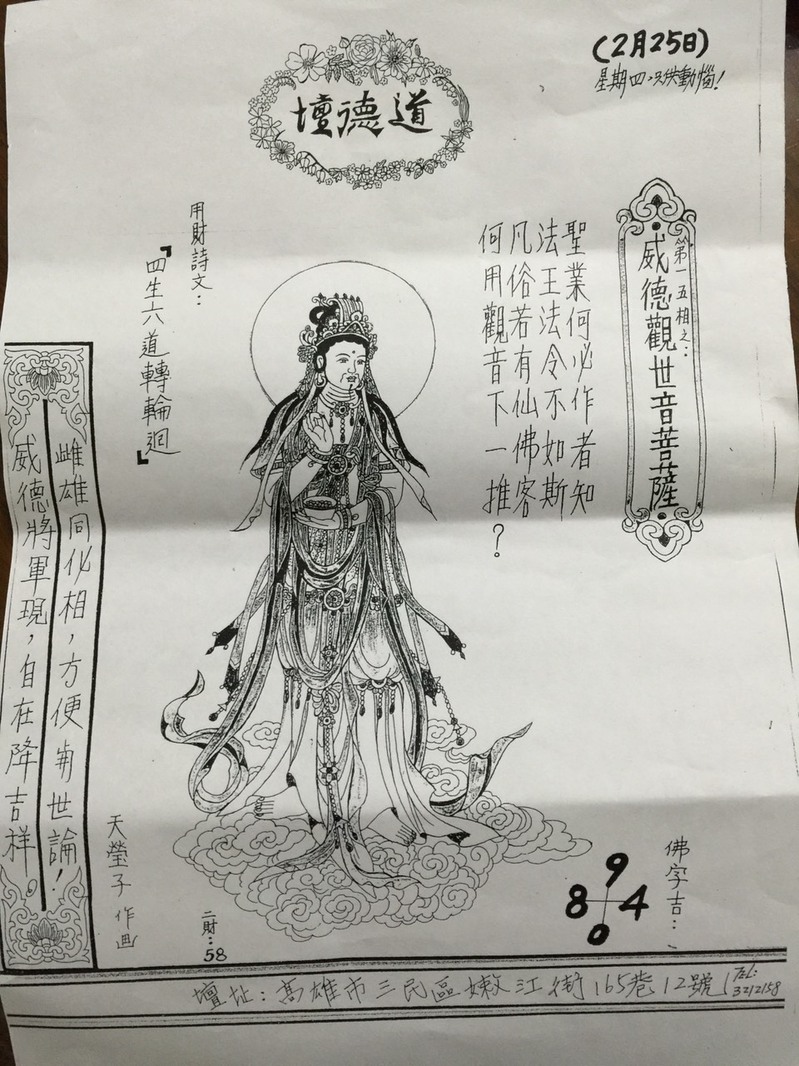 (2月25日)
星期四，只供動惱！
道德壇
第一五相之：
威德觀世音菩薩
聖業何必作者知
法王法令不如斯
凡俗若有仙佛客
何用觀音下一推？
用財詩文：
『四生六道轉輪迴』
雌雄同化相，方便 世論！
威德將軍現，自在降吉祥。
天瑩子作画
二財：58
佛字吉：
9
8 4
0
壇址：高雄市三民區嫩江街165巷12號
TEL:
3212158